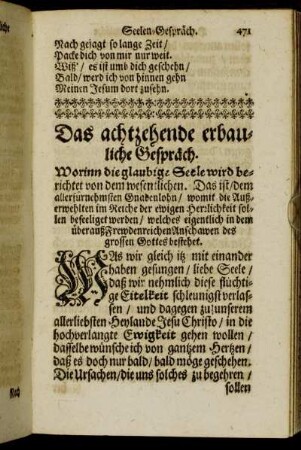 Seelen-Gespräch. 471
Nach gejagt so lange Zeit/
Packe dich von mir nur weit.
Wiß'/ es ist umb dich geschehn/
Bald/ werd ich von hinnen gehn
Meinen Jesum dort zusehn.
Das achtzehende erbau-
liche Gespräch.
Worinn die glaubige Seele wird be-
richtet von dem wesentlichen. Das ist/ dem
allerfürnehmsten Gnadenlohn/ womit die Auß-
erwehlten im Reiche der ewigen Herrlichkeit sol-
len beseeliget werden/ welches eigentlich in dem
überauß Freudenreichen Anschawen des
grossen Gottes bestehet.
WAs wir gleich itz mit einander
haben gesungen/ liebe Seele/
daß wir nehmlich diese flüchti-
ge Eitelkeit schleunigst verlas-
sen/ und dagegen zu unserem
allerliebsten Heylande Jesu Christo/ in die
hochverlangte Ewigkeit gehen wollen/
dasselbe wünsche ich von gantzem Hertzen/
daß es doch nur bald/ bald möge geschehen.
Die Ursachen/ die uns solches zu begehren/
sollen